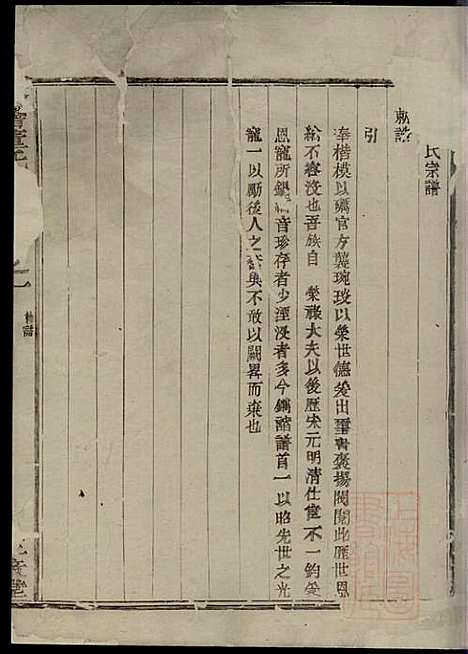 氏宗譜
敕誥
引
奉楷模以礪官方襲琬琰以榮世德爰出璽書褒揚閥閱此歷世恩
綸不容沒也吾族自　榮祿大夫以後歷宋元明清仕宦不一鈞受
恩寵所錫 音珍存者少湮没者多今鐫誥譜首一以昭先世之光
寵一以勵後人之 不敢以闕畧而棄也